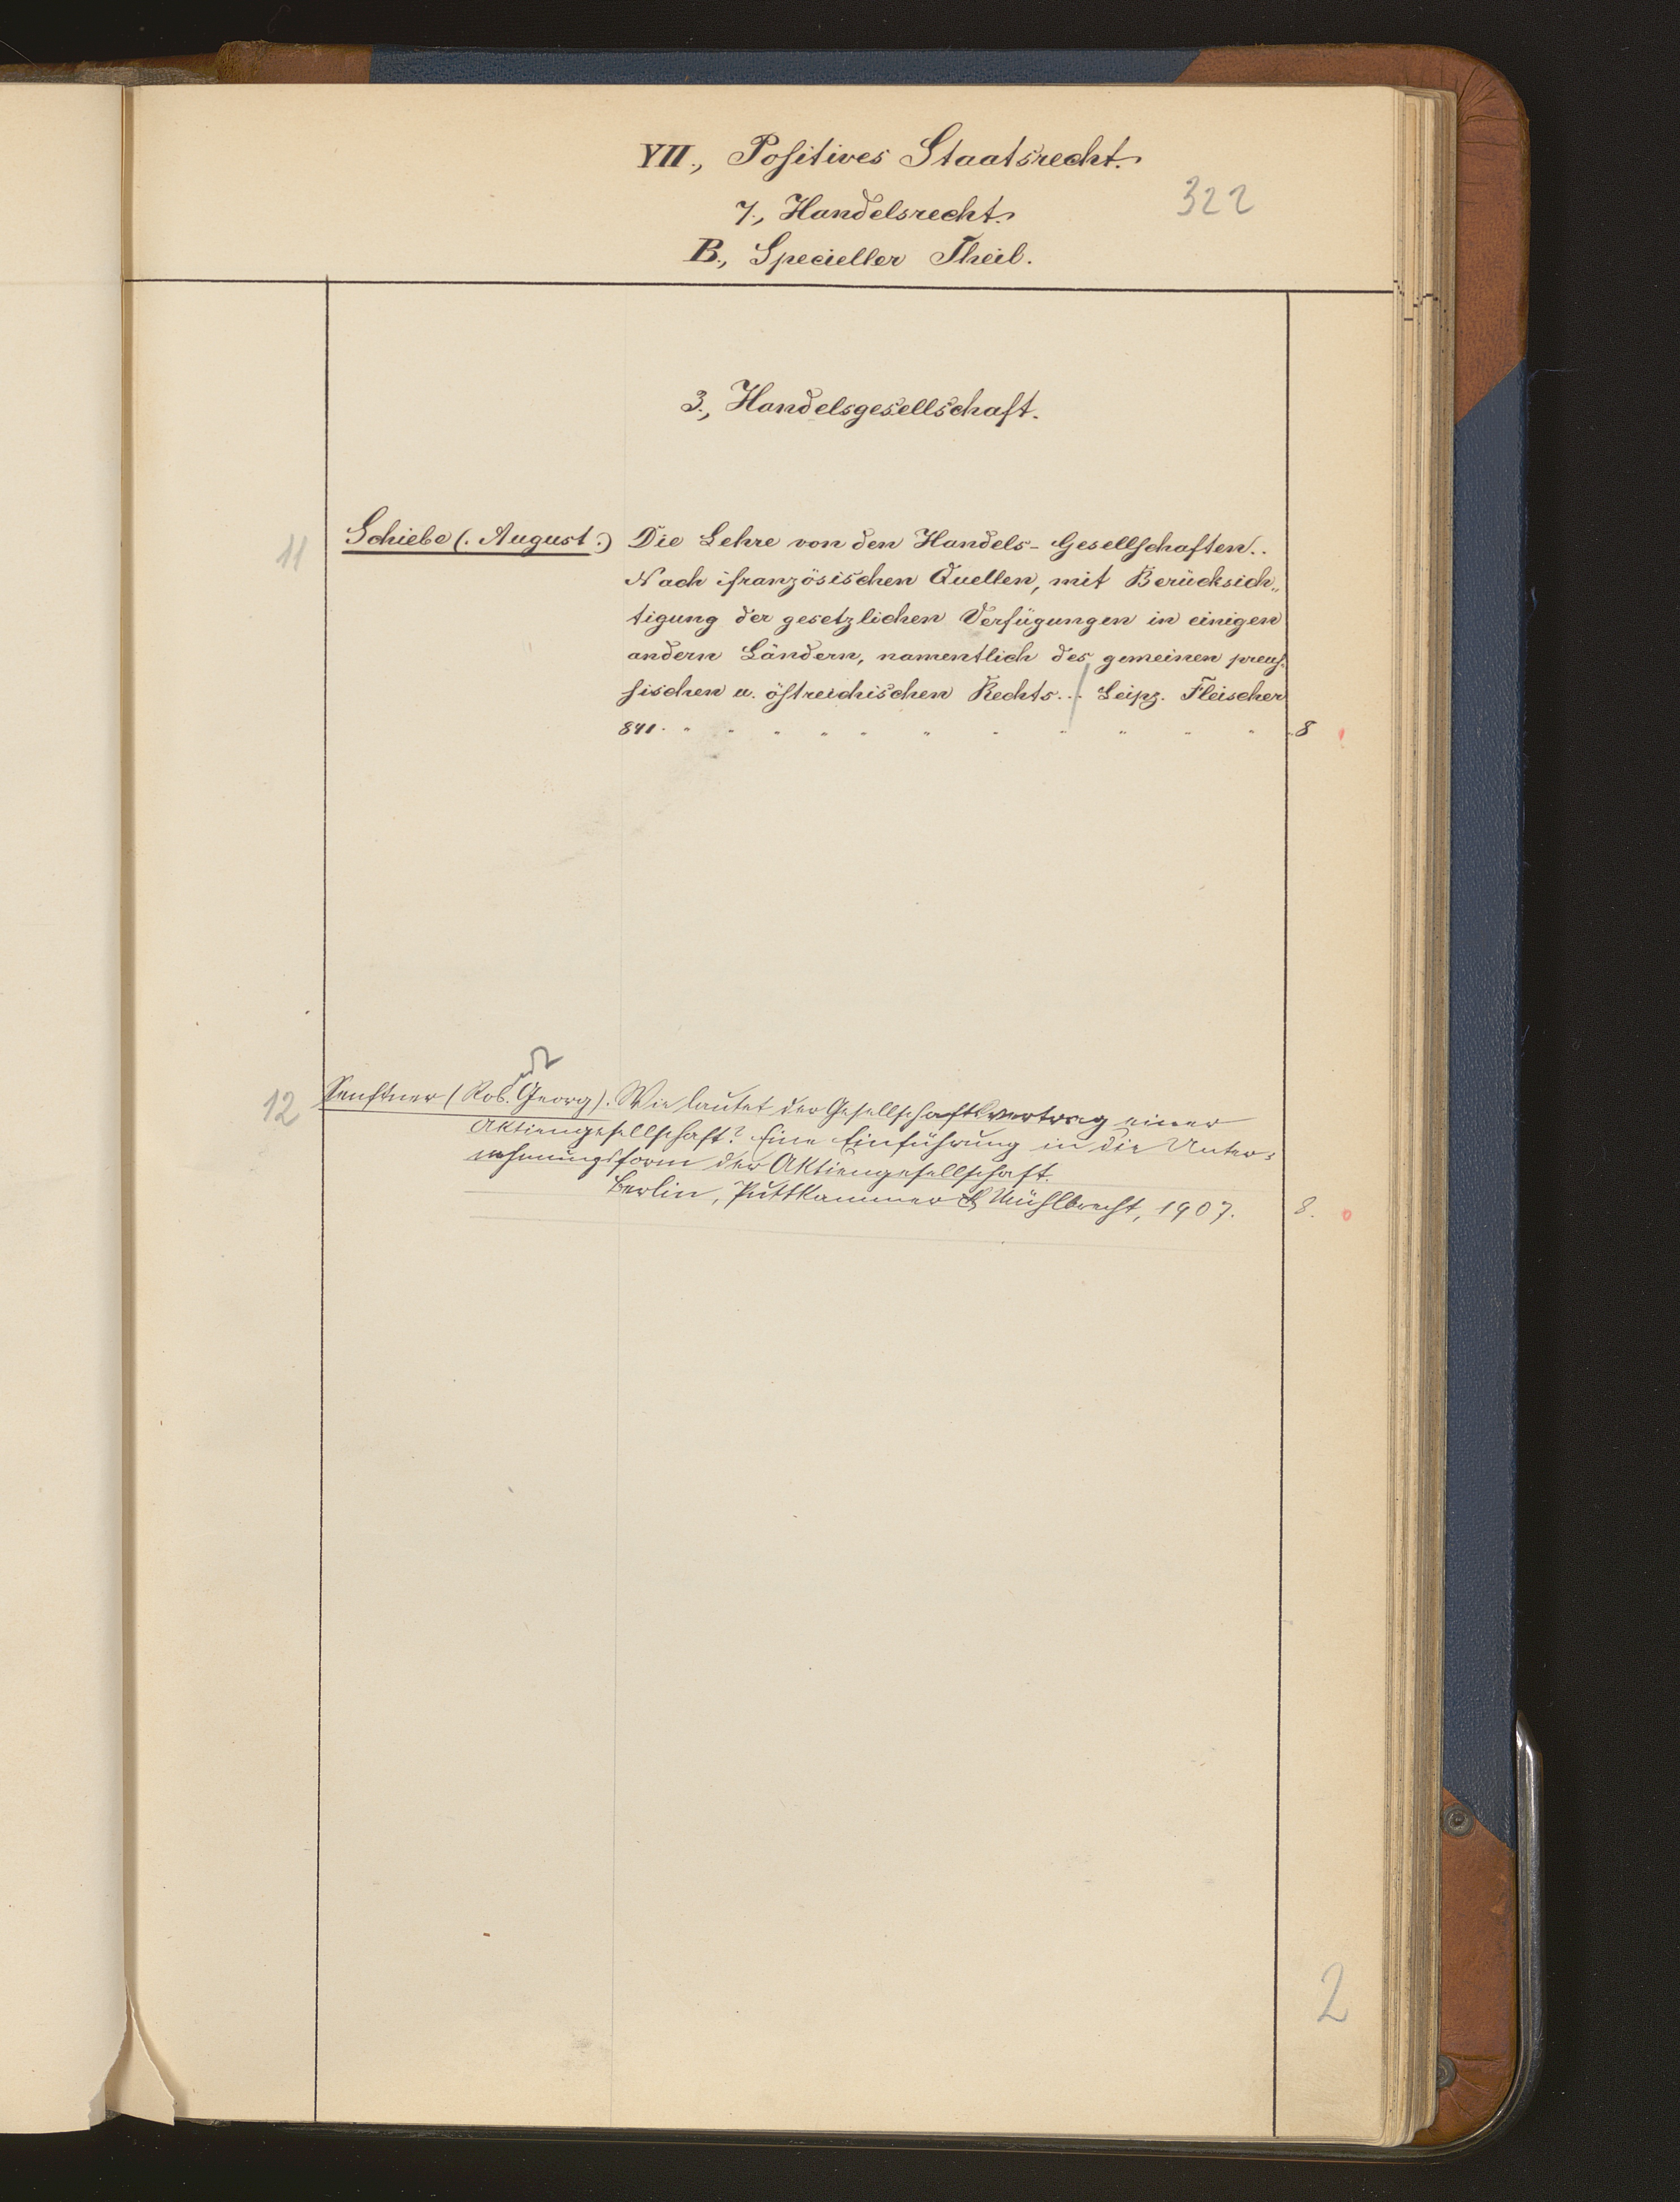 VII., Positives Staatsrecht.
7., Handelsrecht.
322
B., Specieller Theil.
3., Handelsgesellschaft.
11 Schiebe (. August :) Die Lehre von den Handels- Gesellschaften..
Nach französischen Quellen, mit Berücksich„
tigung der gesetzlichen Verfügungen in einigen
andern Ländern, namentlich des gemeinen preus-
sischen u. östreichischen Rechts... Leipz. Fleischer
841. " " " " " " " " " " " 8
12 Senftner (Rob. Georg). Wie lautet der Gesellschaftsvertrag einer
Aktiengesellschaft? Eine Einführung in die Unter-
nehmungsform der Aktiengesellschaft.
Berlin, Puttkammer & Mühlbrecht, 1907. 8.
2